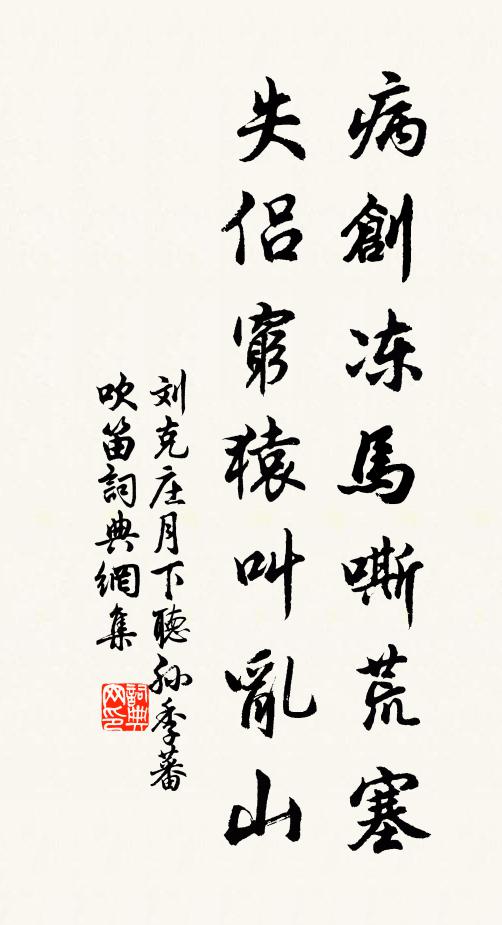 病創冻馬嘶荒塞
失侣窮猿叫亂山
刘克庄月下聽孙季蕃
吹笛詞典網集
詞典网印